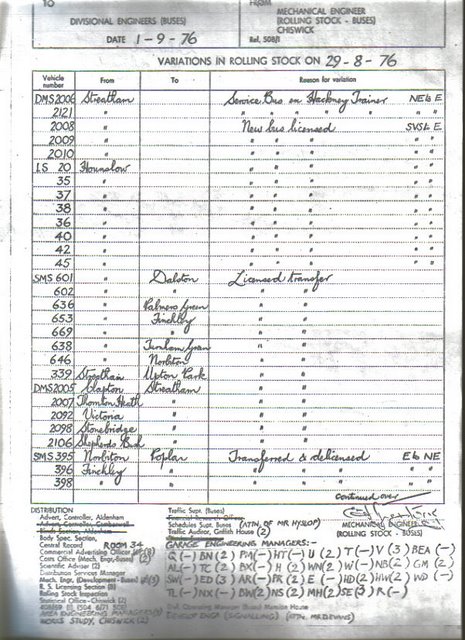 TO
FROM
DIVISIONAL ENGINEERS (BUSES)
MECHANICAL ENGINEER
(ROLLING STOCK - BUSES)
CHISWICK
DATE 1-9-76
Ref. 508/1
VARIATIONS IN ROLLING STOCK ON 29-8-76
Vehicle number From To Reason for variation
DMS2006 Streatham Service Bus on Hackney Trainer NE to E
2121 " " " " " " "
2008 " New bus licensed SVSL E
2009 " " " " " "
2010 " " " " " "
LS 20 Hounslow " " " " "
35 " " " " " "
37 " " " " " "
38 " " " " " "
36 " " " " " "
40 " " " " " "
42 " " " " " "
45 " " " " " "
SMS 601 " Dalston Licensed transfer
602 " " " "
636 " Palmers Green " "
653 " Finchley " "
669 " " " "
638 " Turnham Green " "
646 " Norbiton " "
339 Streatham Upton Park " "
DMS2005 Clapton Streatham " "
2007 Thornton Heath " " "
2092 Victoria " " "
2098 Stonebridge " " "
2106 Shepherds Bush " " "
SMS 395 Norbiton Poplar Transferred & delicensed E to NE
396 Finchley " " " " " "
398 " " " " " "
Continued over
DISTRIBUTION
Advert. Controller, Aldenham
Advert. Controller, Camberwell
Body Spec. Section,
Central Record ROOM 34
Commercial Advertising Officer
Costs Office (Mech. Engr.-Buses) (2)
Scientific Adviser (2)
Distribution Services Manager
Mech. Engr. (Development - Buses)
R. S. Licensing Section (8)
Rolling Stock Inspection
Statistical Office - Chiswick (2)
AREA ENGINEERING MANAGERS
WORKS STUDY, CHISWICK (2)
Traffic Supt. (Buses)
Schedules Supt. Buses (ATTN. OF MR HYSLOP)
Traffic Auditor, Griffith House (2)
GARAGE ENGINEERING MANAGER:-
MECHANICAL ENGINEER
(ROLLING STOCK - BUSES)
Q(-) BN(2) PM(-) HT(-) U(2) T(-) V(3) BEA(-)
AL(-) TC(2) BX(-) H(2) WN(2) W(-) NB(2) GM(2)
SW(-) ED(3) AR(-) PR(2) E(-) HD(2) HW(2) WD(-)
TL(-) NX(-) BW(2) NS(2) MH(2) SE(3) R(-)
DEVELOPMENT (SIGNALLING) ATTN. MR D. EVANS